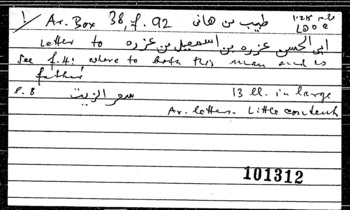 1/ Ar. Box 38, f. 92 طيب بن هانى
letter to ابى الحسن عزره بن اسمعيل بن عزره
See f. 41 where to both this man and to father
l. 8 سعر الزيت 13 ll. in large
Ar. letters. Little content
101312